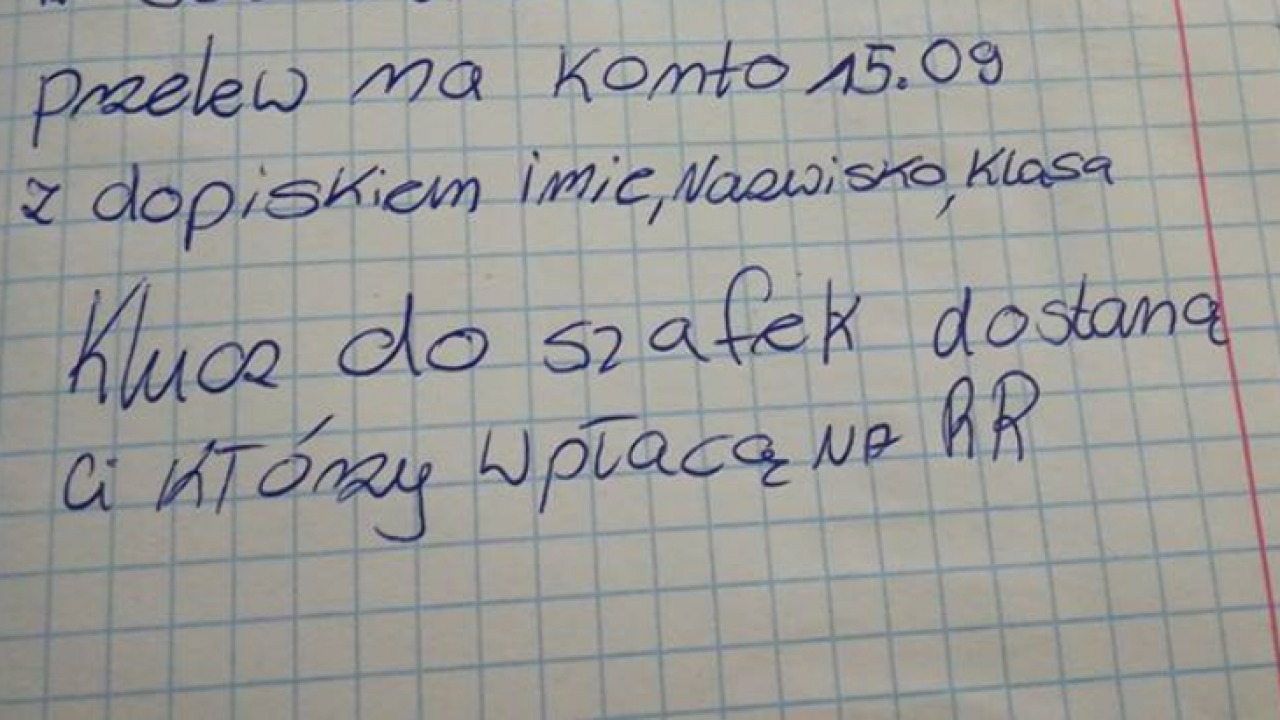 przelew na konto 15.09
z dopiskiem imie, Nazwisko, Klasa
Klucz do szafek dostaną
Ci którzy wpłacą na RR